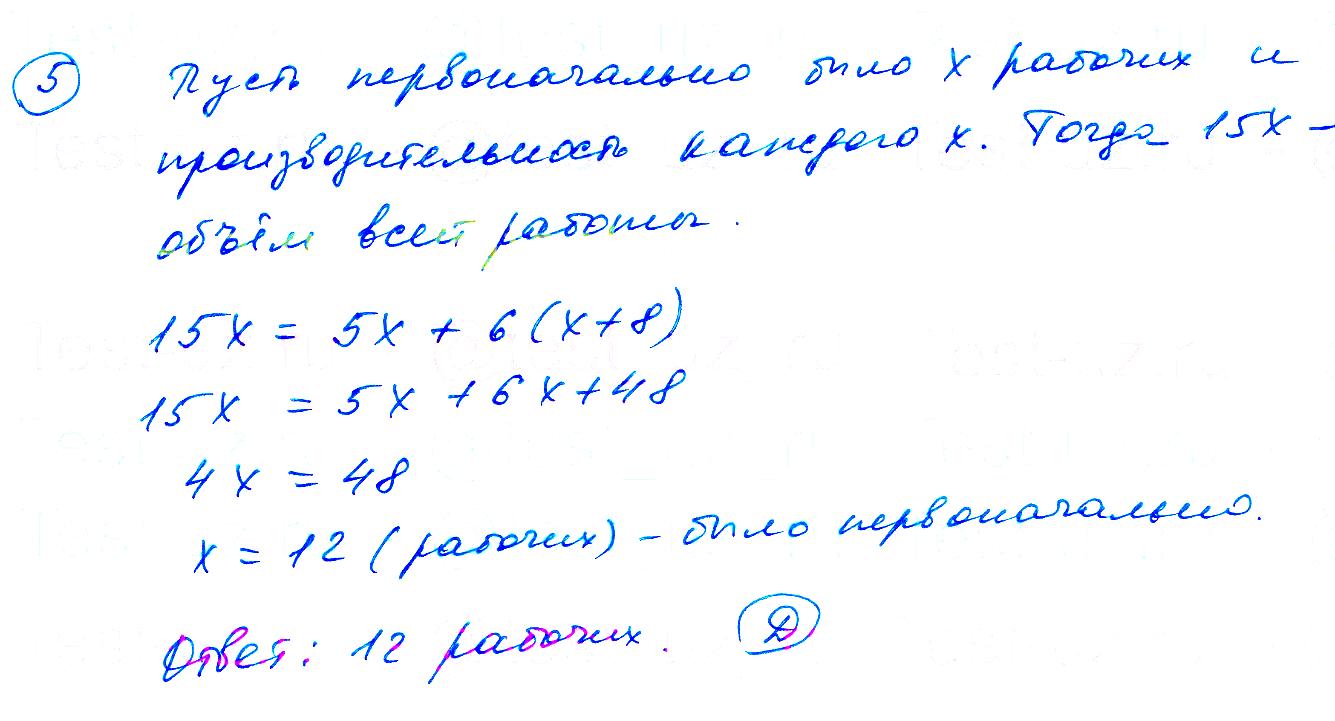 5 Пусть первоначально было x рабочих и
производительность каждого x. Тогда 15x –
объём всей работы.
15x = 5x + 6(x+8)
15x = 5x + 6x+48
4x = 48
x = 12 (рабочих) – было первоначально.
Ответ: 12 рабочих. Д